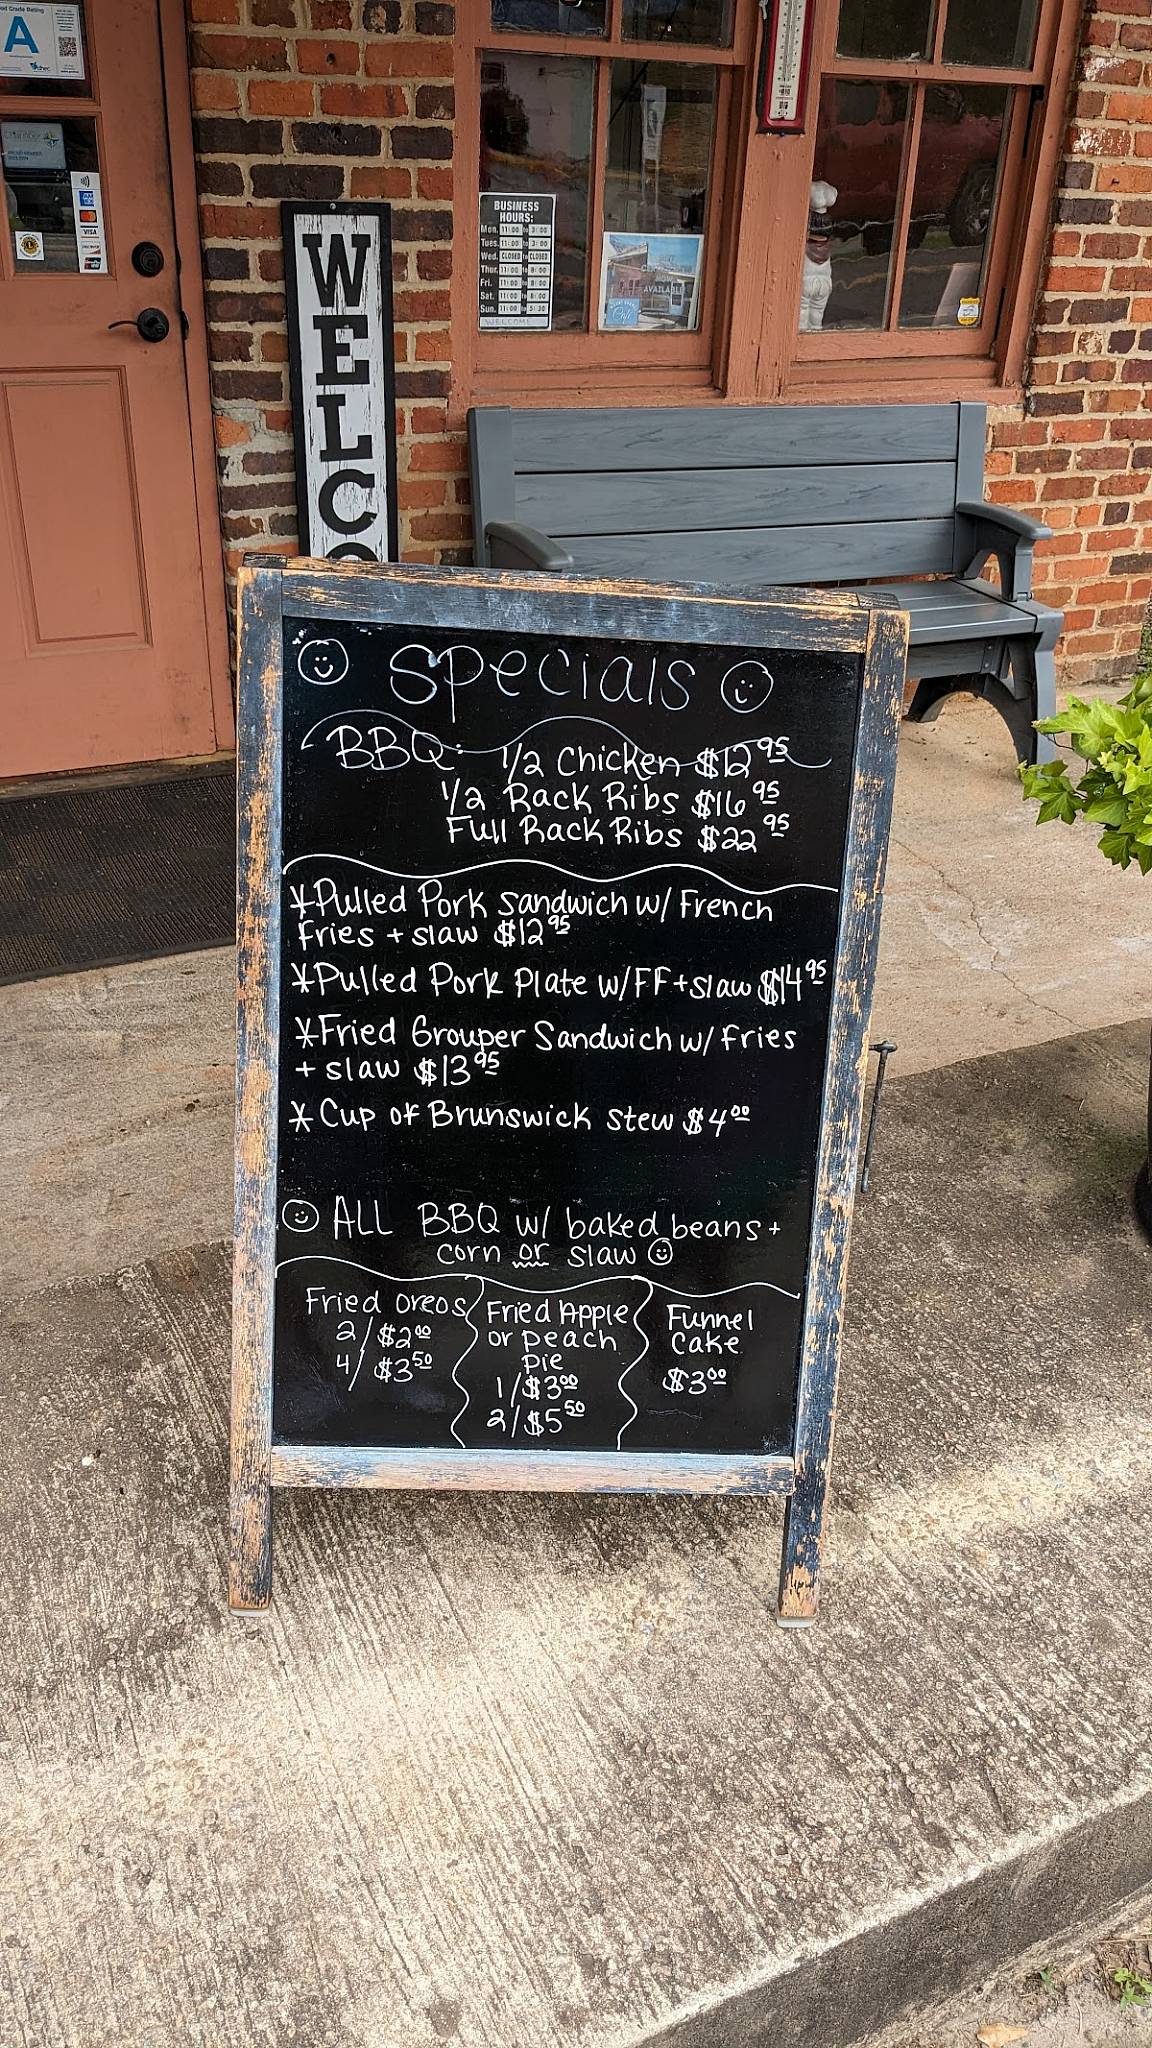 A
AM EX
VISA
DISCOVER
BUSINESS
HOURS:
Mon. 11:00 to 3:00
Tues. 11:00 to 3:00
Wed. CLOSED to CLOSED
Thur. 11:00 to 8:00
Fri. 11:00 to 8:00
Sat. 11:00 to 8:00
Sun. 11:00 to 3:30
WELCOME
NOW
AVAILABLE
WELCO
Specials
BBQ: 1/2 Chicken $12 95
1/2 Rack Ribs $16 95
Full Rack Ribs $22 95
*Pulled Pork Sandwich w/ French
Fries + slaw $12 95
*Pulled Pork Plate w/FF+slaw $14 95
*Fried Grouper Sandwich w/ fries
+ slaw $13 95
* Cup of Brunswick stew $4 00
ALL BBQ w/ baked beans +
corn or slaw
Fried Oreos
2/$2 00
4/ $3 50
Fried Apple
or peach
pie
1/$3 00
2/$5 50
Funnel
Cake
$3 00